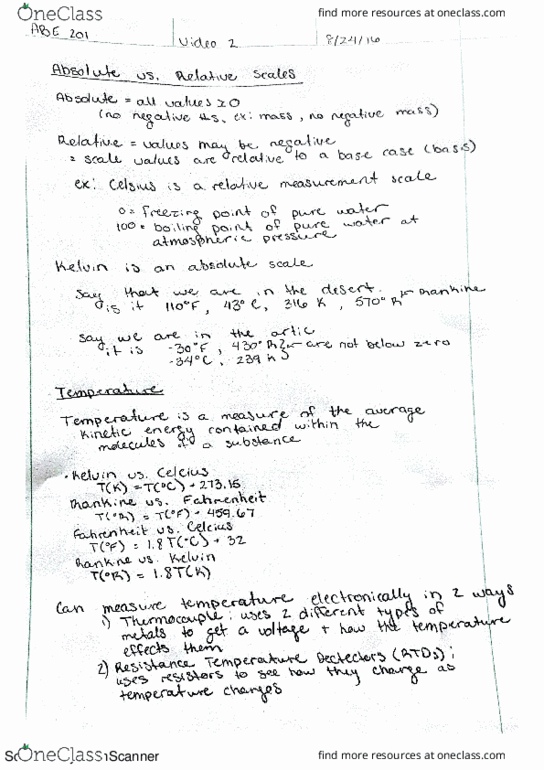 OneClass
find more resources at oneclass.com
ABE 201
Video 2
8/24/16
Absolute vs. Relative Scales
Absolute = all values ≥0
(no negative #s, ex: mass, no negative mass)
Relative = values may be negative
= scale values are relative to a base case (basis)
ex: Celsius is a relative measurement scale
0 = freezing point of pure water
100 = boiling point of pure water at
atmospheric pressure
Kelvin is an absolute scale
Say that we are in the desert.
is it 110°F, 43°C, 316 K, 570°R ← Rankine
Say we are in the artic
it is -30°F, 430°R ← are not below zero
-34°C, 239 K
Temperature
Temperature is a measure of the average
kinetic energy contained within the
molecules of a substance
• Kelvin vs. Celcius
T(K) = T(°C) + 273.15
Rankine vs. Fahrenheit
T(°R) = T(°F) + 459.67
Fahrenheit vs. Celcius
T(°F) = 1.8T(°C) + 32
Rankine vs. Kelvin
T(°R) = 1.8T(K)
Can measure temperature electronically in 2 ways
1) Thurmocouple: uses 2 different types of
metals to get a voltage + how the temperature
effects them
2) Resistance Temperature Dectectors (RTDs);
uses resistors to see how they change as
temperature changes
OneClass
Scanner
find more resources at oneclass.com